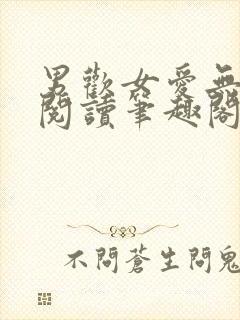 男歡女愛無
閱讀筆趣閣
不問蒼生問鬼